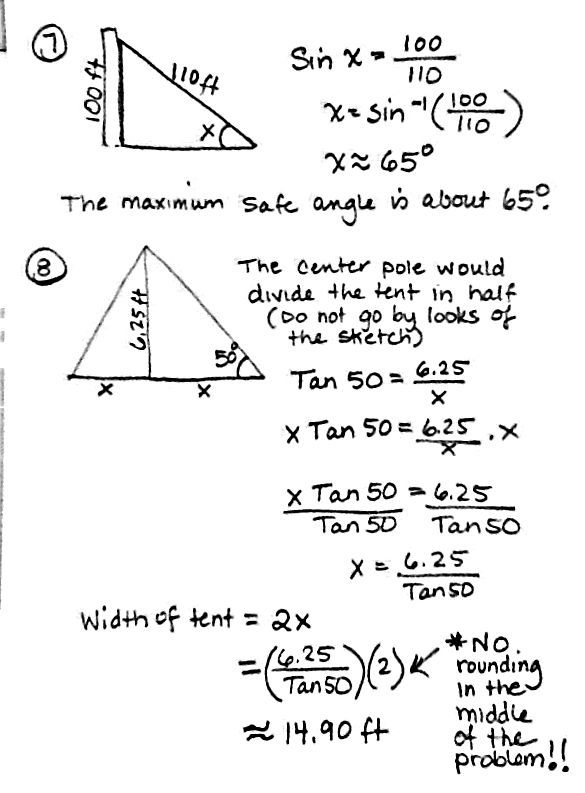 7
100 ft
110 ft
x
Sin x = 100/110
x = sin⁻¹(100/110)
x ≈ 65°
The maximum safe angle is about 65°.
8
6.25 ft
50°
x
x
The center pole would
divide the tent in half
(Do not go by looks of
the sketch)
Tan 50 = 6.25/x
x Tan 50 = 6.25/x · x
x Tan 50/Tan 50 = 6.25/Tan 50
x = 6.25/Tan 50
Width of tent = 2x
= (6.25/Tan 50)(2)
≈ 14.90 ft
*No
rounding
in the
middle
of the
problem!!